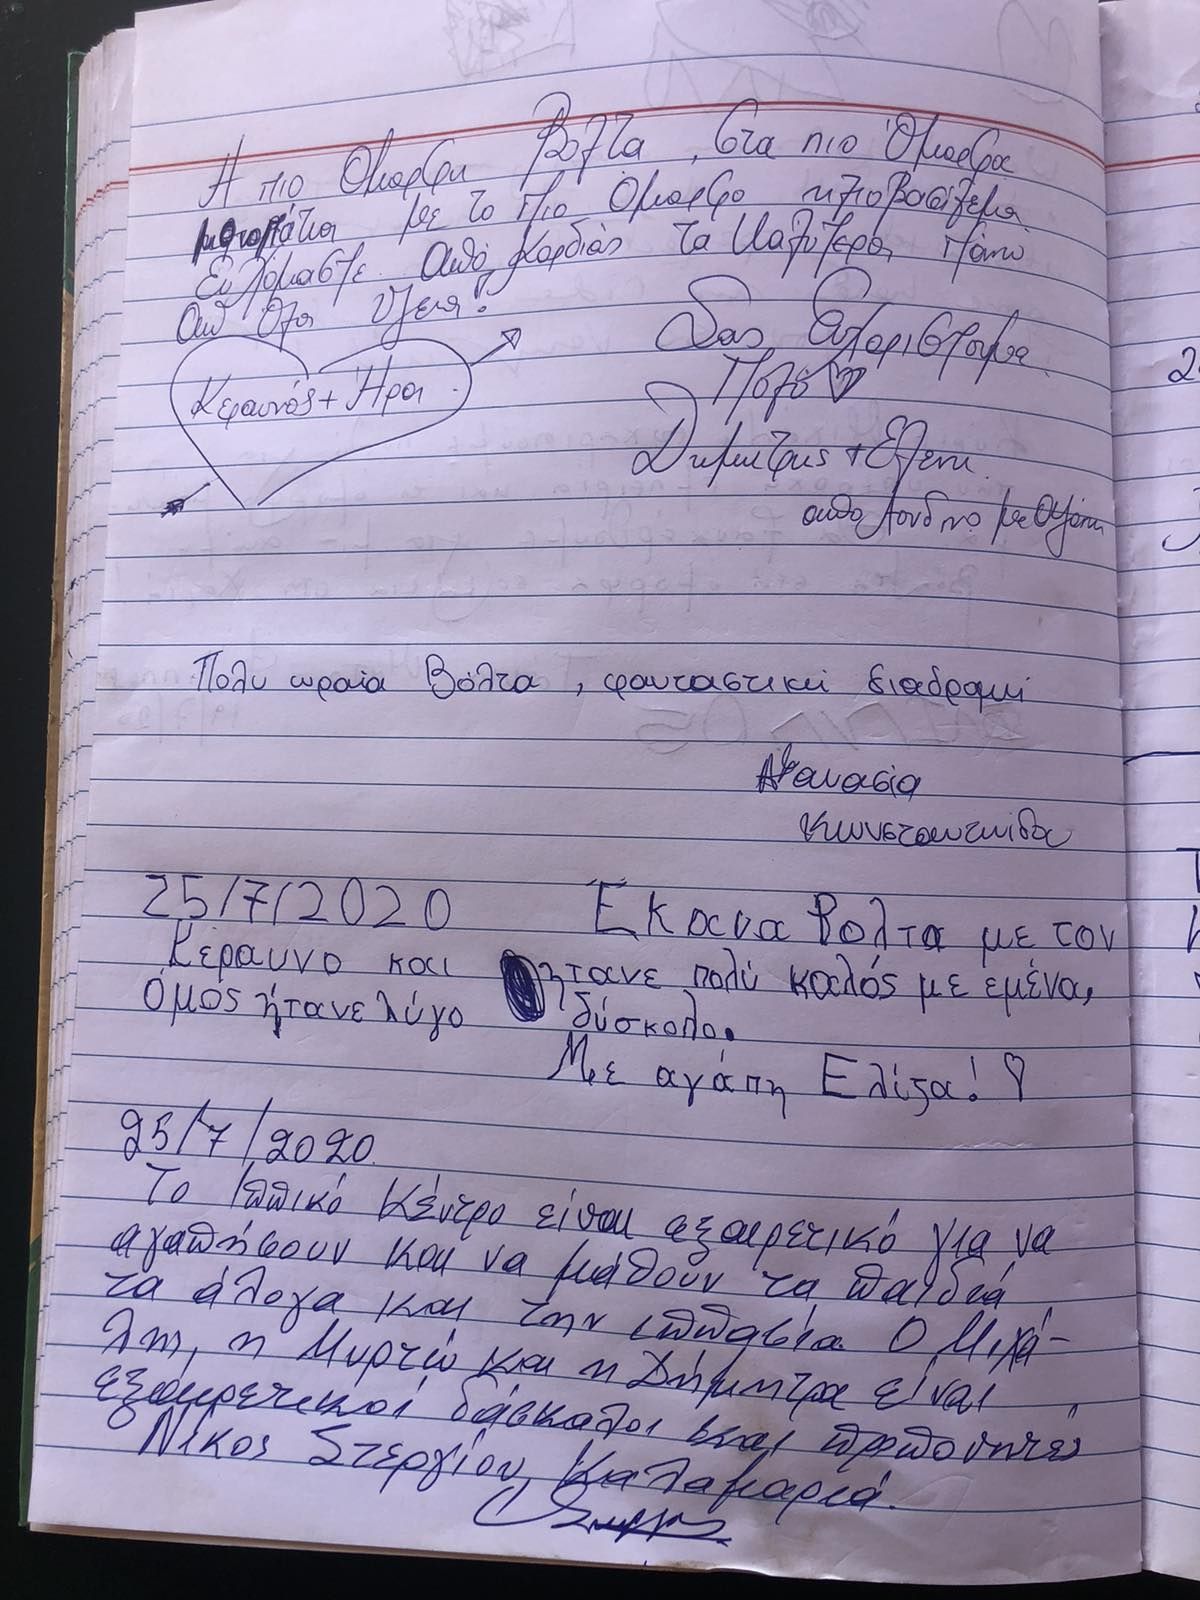 Η πιο Όμορφη Βόλτα, Στα πιο Όμορφα
μονοπάτια με το πιο Όμορφο ηλιοβασίλεμα
Ευχόμαστε Από Καρδιάς τα Καλύτερα, Πάνω
Απ Όλα Υγεια!
Κεραυνός + Ήρα
Σας Ευχαριστουμε
Πολύ
Δημητρης + Ελενη
απο Λονδινο με αγάπη
Πολυ ωραία Βόλτα, φανταστική διαδρομή
Αθανασία
Κωνσταντινίδου
25/7/2020 Έκανα βολτα με τον
Κέραυνο και ήτανε πολύ καλός με εμένα,
Όμος ήτανε λύγο δύσκολο.
Με αγάπη Ελίζα!
25/7/2020
Το Ιππικό Κέντρο είναι εξαιρετικό για να
αγαπήσουν και να μάθουν τα παιδιά
τα άλογα και την ιππασία. Ο Μιχά-
λης, η Μυρτώ και η Δήμητρα είναι
εξαιρετικοί δάσκαλοι και προπονητές
Νίκος Στεργίου, Καλαμαριά.